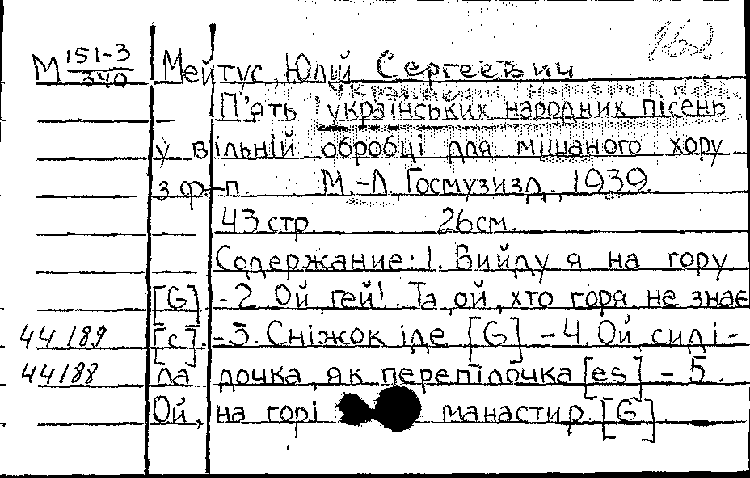 М 151-3/340 Мейтус, Юлій Сергеевич
П'ять українських народних пісень
у вільній обробці для мішаного хору
з ф-п. М.-Л. Госмузизд, 1939.
43 стр. 26 см.
Содержание: 1. Вийду я на гору
[G] - 2. Ой гей! Та ой, хто горя не знає
44189 [c]. - 3. Сніжок іде [G] - 4. Ой, сиді-
44188 ла дочка, як перепілочка [es] - 5.
Ой, на горі манастир. [G]